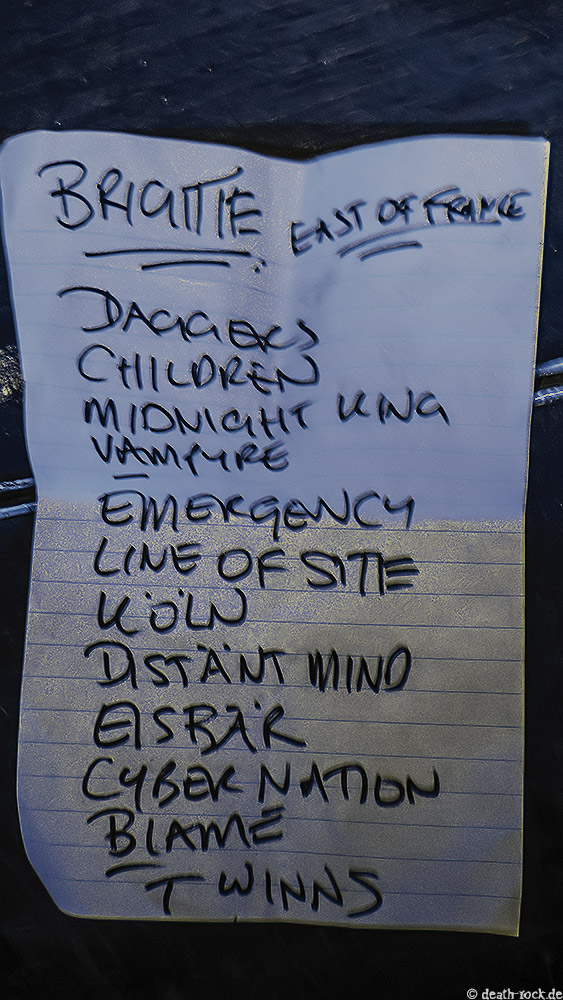 BRIGITTE EAST OF FRANCE
DAGGERS
CHILDREN
MIDNIGHT KING
VAMPYRE
EMERGENCY
LINE OF SITE
KÖLN
DISTÄNT MIND
EISBÄR
CYBER NATION
BLAME
TWINNS
© death-rock.de